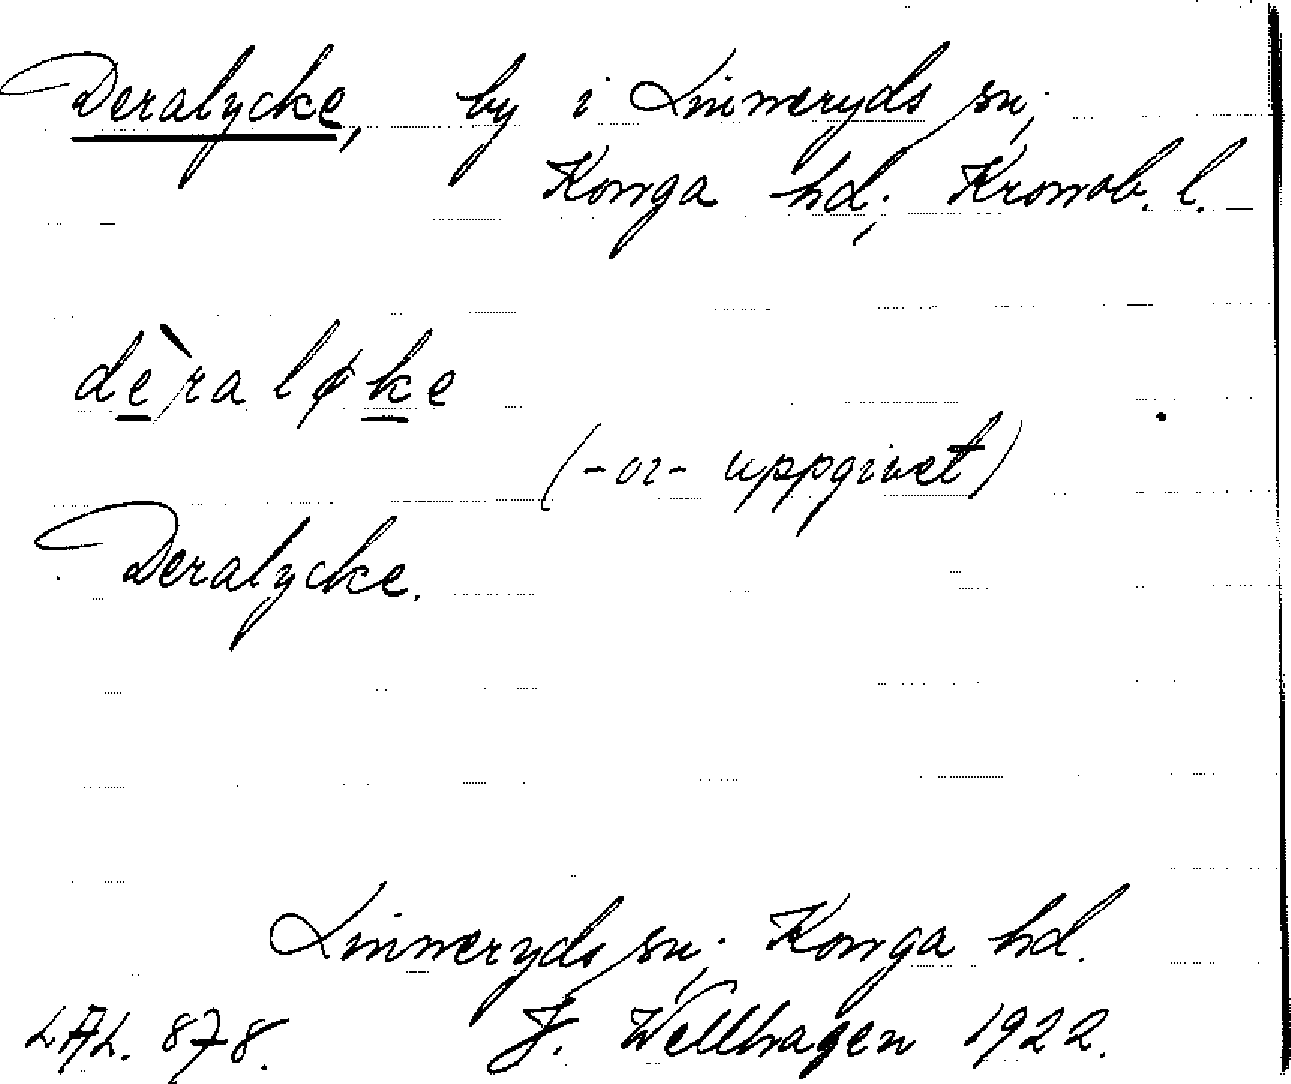 Deralycke, by i Linneryds sn,
Konga hd; Kronob. l.
dèraløke
(-or- uppgivet)
Deralycke.
Linneryds sn; Konga hd.
LAL. 878. J. Wellhagen 1922.